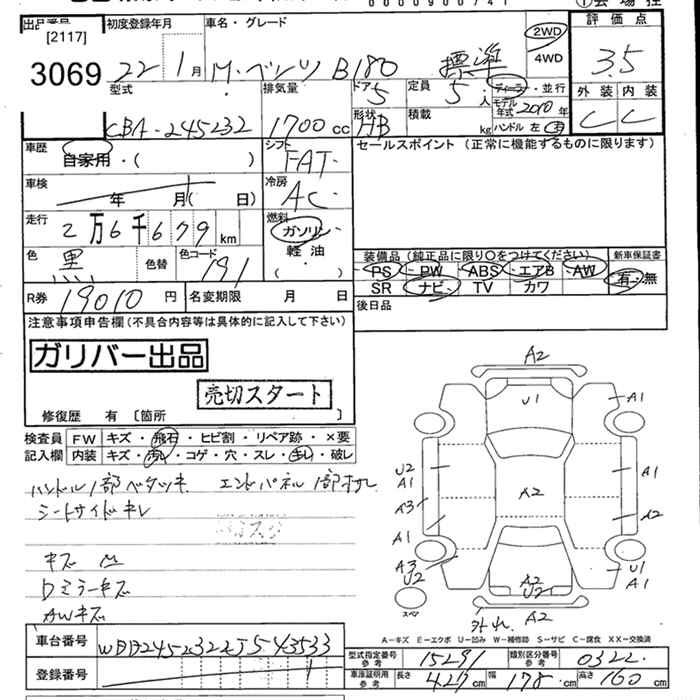 0000900741
①会場控
出品番号 初度登録年月 車名・グレード 評価点
[2117]
3069
22年 1月 M・ベンツ B180 標準
2WD
4WD
3.5
型式 排気量 ドア 5 定員 5人 ディーラー・並行 外装 内装
CBA-245232 1700cc 形状 HB 積載 kg モデル年式 2010年 C C
ハンドル 左 右
車歴 シフト セールスポイント (正常に機能するものに限ります)
自家用・( ) FAT
車検 冷房
年 月( 日) AC
走行 燃料
2万6千679km ガソリン
色 色替 色コード 軽油 装備品 (純正品に限り○をつけてください) 新車保証書
黒 191 ( ) PS PW ABS エアB AW 有・無
SR ナビ TV カワ
R券 19010円 名変期限 月 日 後日品
注意事項申告欄 (不具合内容等は具体的に記入して下さい)
ガリバー出品
売切スタート
修復歴 有 〔箇所 〕
検査員 FW キズ・飛石・ヒビ割・リペア跡・×要
記入欄 内装 キズ・汚れ・コゲ・穴・スレ・キレ・破レ
ハンドル1部ベタツキ エンドパネル1部サビ
シートサイドキレ
キズ M
Dミラーキズ
AWキズ
A2
U1 A1
U2
A1 A1
A3 A2 A2
A1
A3
U2 A2
U2 U1
A1
スペア A2
外れ
A-キズ E-エクボ U-凹み W-補修跡 S-サビ C-腐食 XX-交換済
車台番号 WDD2452322J543533
型式指定番号 参考 15291 類別区分番号 参考 0322
登録番号 車庫証明用 参考 長さ 427cm 幅 178cm 高さ 160cm